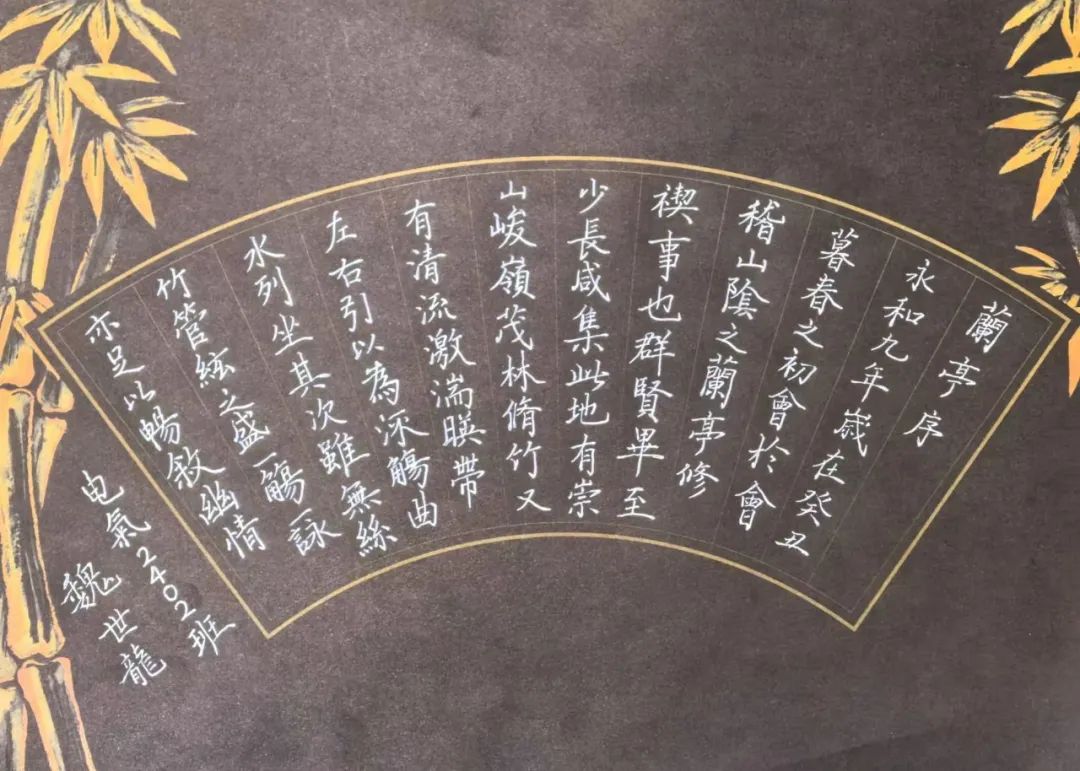 蘭亭序
永和九年歲在癸丑
暮春之初會於會
稽山陰之蘭亭修
禊事也群賢畢至
少長咸集此地有崇
山峻嶺茂林脩竹又
有清流激湍暎帶
左右引以為流觴曲
水列坐其次雖無絲
竹管絃之盛一觴一詠
亦足以暢敘幽情
电氣2402班
魏世龍